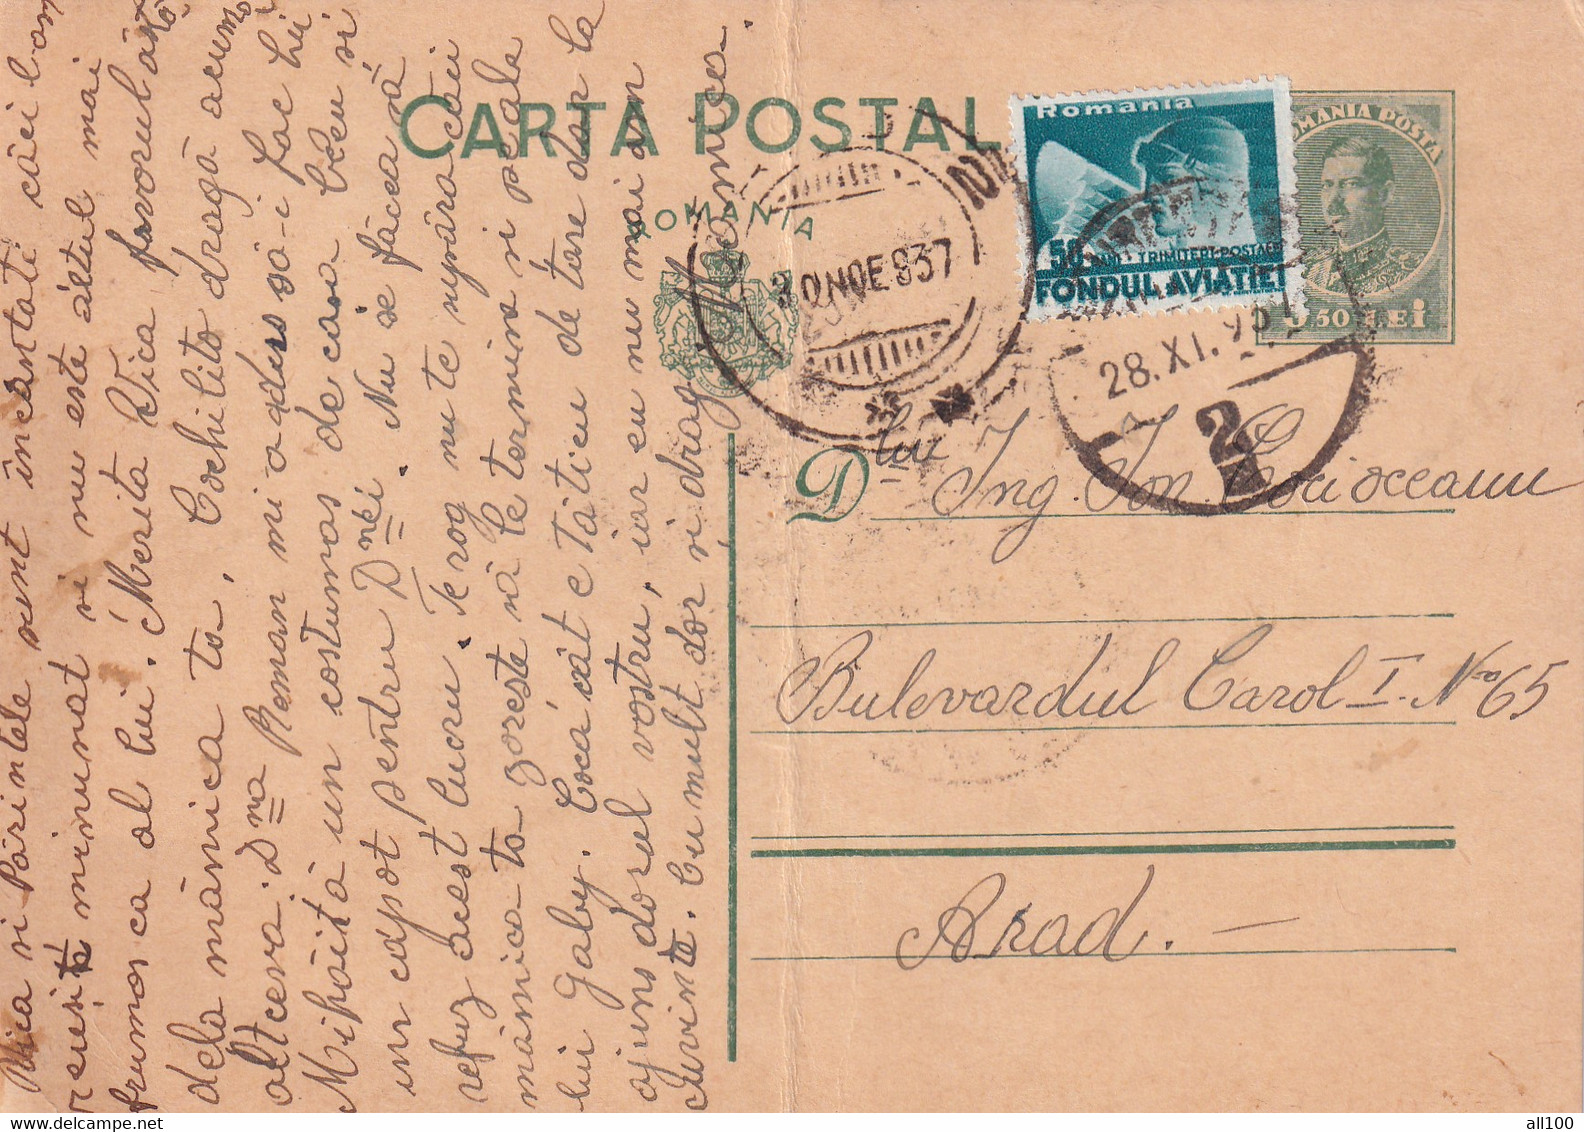 CARTA POSTALĂ
ROMANIA
Romania
50 BANI TRIMITERI POSTALE
FONDUL AVIAȚIEI
ROMANIA POSTA
3,50 LEI
30 NOE 937
28.XI.937
2
D lui Ing. Ion Cocioceanu
Bulevardul Carol I. No 65
Arad. —
Vica si Părintele sunt incantati căci l-am
minunat si nu este altul mai
frumos ca al lui. Merita Vica favorul ăsta
dela mămica ta. Cochilito dragă acum
altceva. Dna Roman mi a adus să-i fac lui
Mihăită un costumas de casa bleu si
un căpot pentru Dnéi. Nu se făcea să
refuz acest lucru. Te rog nu te supăra căci
mămica ta zoreste să le termine si pe ale
lui Gaby. Cocă cât e Tăticu de tare dar la
ajuns dorul vostru, iar eu nu mai am
cuvinte. Cu mult dor si drag Mămica.
all100